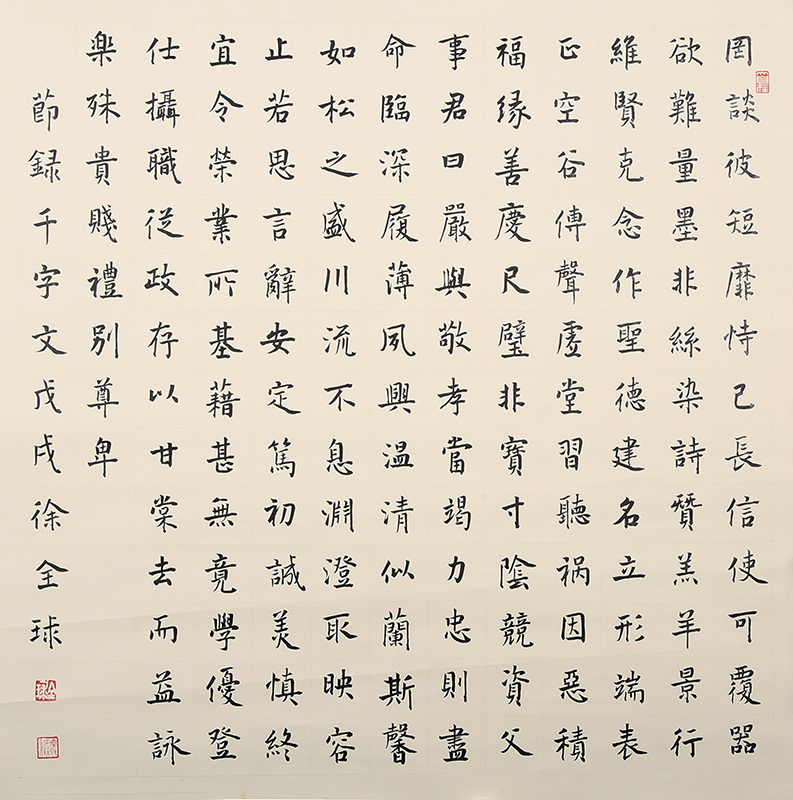 罔談彼短靡恃己長信使可覆器
欲難量墨非絲染詩贊羔羊景行
維賢克念作聖德建名立形端表
正空谷傳聲虛堂習聽禍因惡積
福緣善慶尺璧非寶寸陰競資父
事君曰嚴與敬孝當竭力忠則盡
命臨深履薄夙興温清似蘭斯馨
如松之盛川流不息淵澄取映容
止若思言辭安定篤初誠美慎終
宜令榮業所基藉甚無竟學優登
仕攝職從政存以甘棠去而益詠
樂殊貴賤禮別尊卑
節録千字文戊戌徐全球